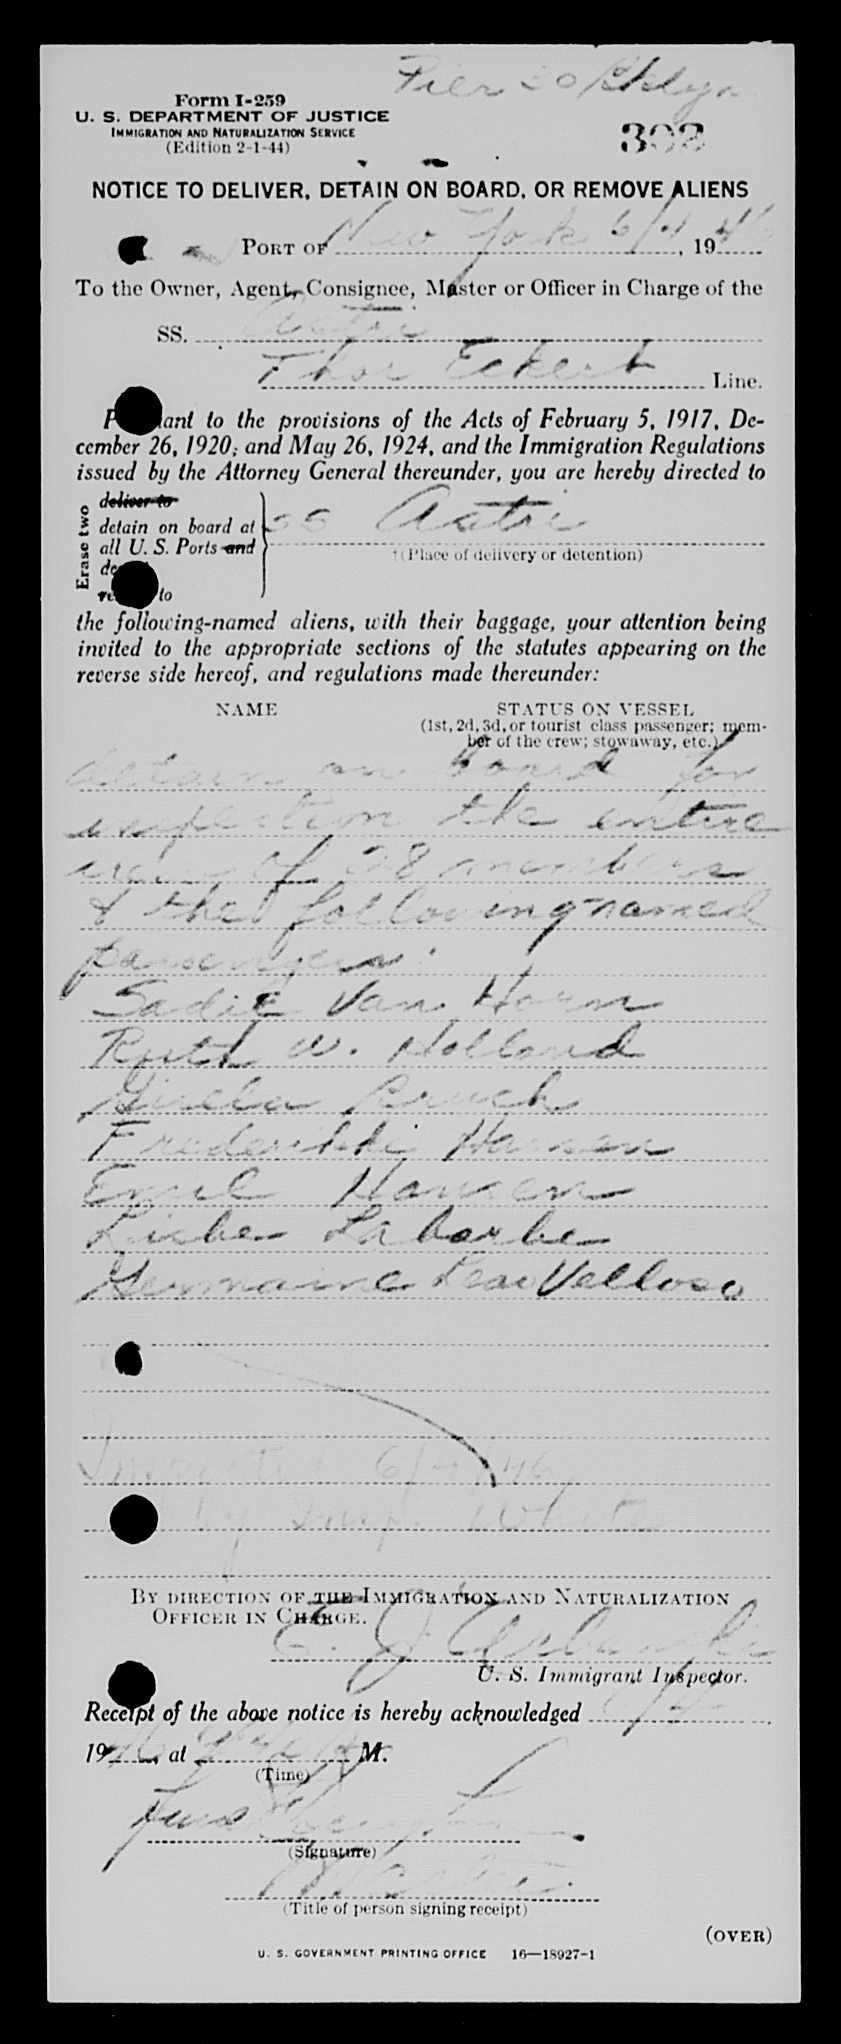 Pier 30 Bklyn
Form I-259
U. S. DEPARTMENT OF JUSTICE
IMMIGRATION AND NATURALIZATION SERVICE
(Edition 2-1-44)
NOTICE TO DELIVER, DETAIN ON BOARD, OR REMOVE ALIENS
PORT OF New York 6/4, 1946
To the Owner, Agent, Consignee, Master or Officer in Charge of the
SS. Astri
Thor Eckert Line.
to the provisions of the Acts of February 5, 1917, De-
cember 26, 1920; and May 26, 1924, and the Immigration Regulations
issued by the Attorney General thereunder, you are hereby directed to
Erase two
deliver to
detain on board at
all U. S. Ports and
SS Astri
to
(Place of delivery or detention)
the following-named aliens, with their baggage, your attention being
invited to the appropriate sections of the statutes appearing on the
reverse side hereof, and regulations made thereunder:
NAME
STATUS ON VESSEL
(1st, 2d, 3d, or tourist class passenger; mem-
ber of the crew; stowaway, etc.)
detain on board for
inspection the entire
crew of 28 members
& the following named
passengers:
Sadie Van Horn
Ruth W. Holland
Bruck
Frederikke Hansen
Emil Hansen
Laborbe
Germaine Leao Velloso
Inspected 6/4/46
by Insp. White
BY DIRECTION OF THE IMMIGRATION AND NATURALIZATION
OFFICER IN CHARGE.
E. J.
U. S. Immigrant Inspector.
Receipt of the above notice is hereby acknowledged
1946, at M.
(Time)
(Signature)
Master
(Title of person signing receipt)
(OVER)
U. S. GOVERNMENT PRINTING OFFICE 16—18927-1